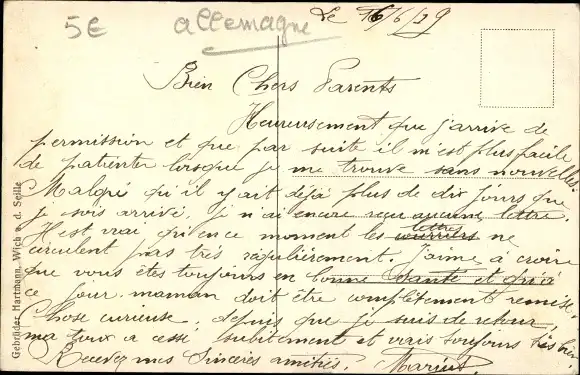 5€
allemagne
Le 16/6/29
Bien Chers Parents
Heureusement que j'arrive de
permission et que par suite il m'est plus facile
de patienter lorsque je me trouve sans nouvelles.
Malgré qu'il y ait déjà plus de dix jours que
je sois arrivé, je n'ai encore reçu aucune lettre.
Il est vrai qu'en ce moment les lettres ne
circulent pas très régulièrement. J'aime à croire
que vous êtes toujours en bonne santé et qu'à
ce jour maman doit être complètement remise.
Chose curieuse, depuis que je suis de retour,
ma toux a cessé subitement et vais toujours très bien.
Recevez mes sincères amitiés. Marius.
Gebrüder Hartmann, Wich a. d. Seille